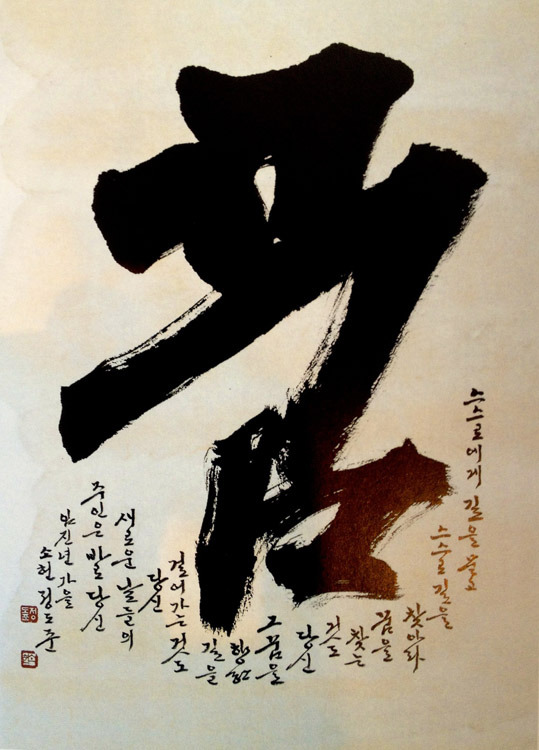 꿈
스스로에게 길을 묻고
스스로 길을
찾아라
꿈을
찾는
것도
당신
그 꿈을
향한
길을
걸어가는 것도
당신
새로운 날들의
주인은 바로 당신
임진년 가을
소헌 정도준